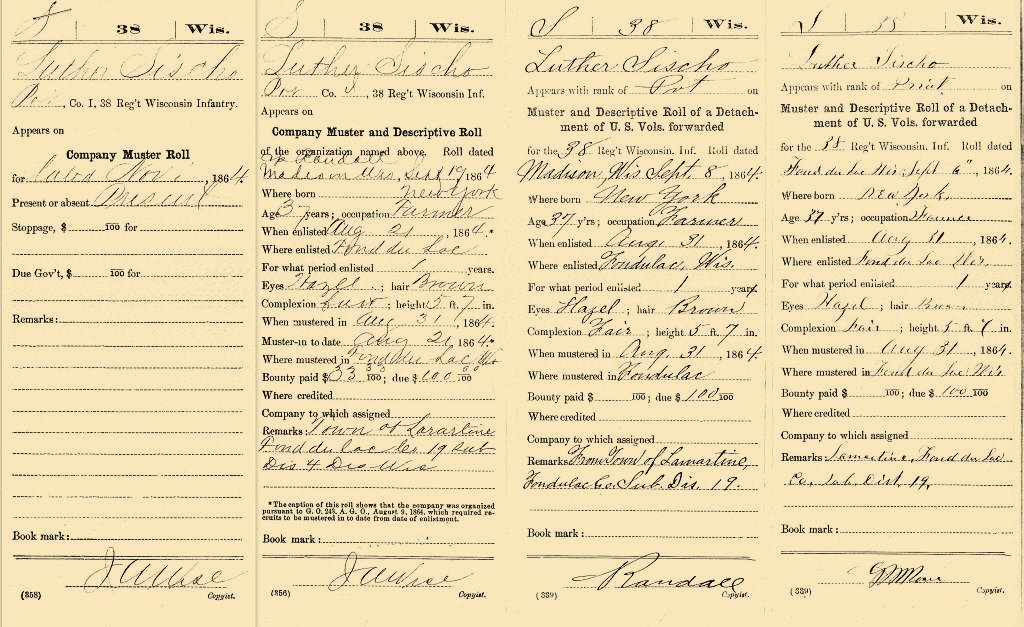 S | 38 | Wis.
Luther Sischo
Pvt, Co. I, 38 Reg't Wisconsin Infantry.
Appears on
Company Muster Roll
for Nov 1, 1864.
Present or absent Present
Stoppage, $ 100 for
Due Gov't, $ 100 for
Remarks:
Book mark:
J A Wise
(358) Copyist.
S | 38 | Wis.
Luther Sischo
Pvt Co. I, 38 Reg't Wisconsin Inf.
Appears on
Company Muster and Descriptive Roll
of the organization named above. Roll dated
Camp Randall
Madison Wis, Sept 19 1864
Where born New York
Age 37 years; occupation Farmer
When enlisted Aug 21, 1864.*
Where enlisted Fond du Lac
For what period enlisted 1 years.
Eyes Hazel; hair Brown
Complexion; height 5 ft. 7 in.
When mustered in Aug 31, 1864.
Muster-in to date Aug 21 1864*
Where mustered in Fond du Lac Wis
Bounty paid $33 33/100; due $100 00/100
Where credited
Company to which assigned
Remarks: Town of Lamartine
Fond du Lac Co 19 Sub
Dis 4 Dis Wis
* The caption of this roll shows that the company was organized
pursuant to G. O. 243, A. G. O., August 9, 1864, which required re-
cruits to be mustered in to date from date of enlistment.
Book mark:
J A Wise
(356) Copyist.
S | 38 | Wis.
Luther Sischo
Appears with rank of Pvt on
Muster and Descriptive Roll of a Detach-
ment of U. S. Vols. forwarded
for the 38 Reg't Wisconsin. Inf. Roll dated
Madison, Wis Sept. 8, 1864.
Where born New York
Age 37 y'rs; occupation Farmer
When enlisted Aug. 31, 1864.
Where enlisted Fondulac, Wis.
For what period enlisted 1 years.
Eyes Hazel; hair Brown
Complexion Fair; height 5 ft. 7 in.
When mustered in Aug. 31, 1864.
Where mustered in Fondulac
Bounty paid $ 100; due $100 100
Where credited
Company to which assigned
Remarks: From Town of Lamartine,
Fondulac Co. Sub. Dis. 19.
Book mark:
Randall
(339) Copyist.
S | 38 | Wis.
Luther Sischo
Appears with rank of Privt on
Muster and Descriptive Roll of a Detach-
ment of U. S. Vols. forwarded
for the 38 Reg't Wisconsin. Inf. Roll dated
Fond du Lac Wis; Sept 6", 1864.
Where born New York.
Age 37 y'rs; occupation Farmer
When enlisted Aug 31, 1864.
Where enlisted Fond du Lac Wis.
For what period enlisted 1 years.
Eyes Hazel; hair
Complexion Fair; height 5 ft. 7 in.
When mustered in Aug 31, 1864.
Where mustered in Fond du Lac Wis
Bounty paid $ 100; due $100 100
Where credited
Company to which assigned
Remarks: Lamartine, Fond du Lac
Co. Sub. Dist. 19,
Book mark:
(339) Copyist.